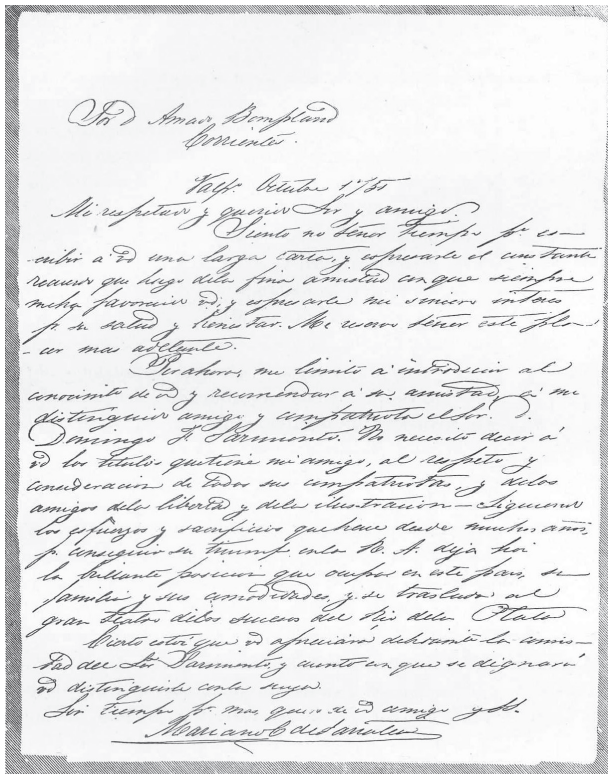 Sor D Amado Bompland
Corrientes.
Valpo. Octubre 1º/51
Mi respetado y querido Sor y amigo
Siento no tener tiempo pa. es-
-cribir á vd una larga carta, y espresarle el constante
recuerdo que hago dela fina amistad con que siempre
meha favorecido vd; y espresarle mi sincero interes
pr su salud y bienestar. Me reservo tener este pla-
-cer mas adelante.
Por ahora, me limito á introducir al
conocimto de vd y recomendar á su amistad, á mi
distinguido amigo y compatriota el Sor. D.
Domingo F. Sarmiento. No necesito decir á
vd los titulos quetiene mi amigo, al respeto y
consideracion de todos sus compatriotas, y delos
amigos dela libertad y dela ilustracion – Siguiendo
los esfuerzos y sacrificios que hace desde muchos años,
pr conseguir su triunfo enla R. A. deja hoi
la brillante posicion que ocupa en este pais, su
familia y sus comodidades, y se traslada al
gran teatro delos sucesos del Rio dela Plata
Cierto estoi que vd apreciará debidamte la amis-
tad del Sor Sarmiento, y cuento con que se dignará
vd distinguirle conla suya.
Sin tiempo pa mas, quedo de vd amigo y S.
Mariano E de Sarratea